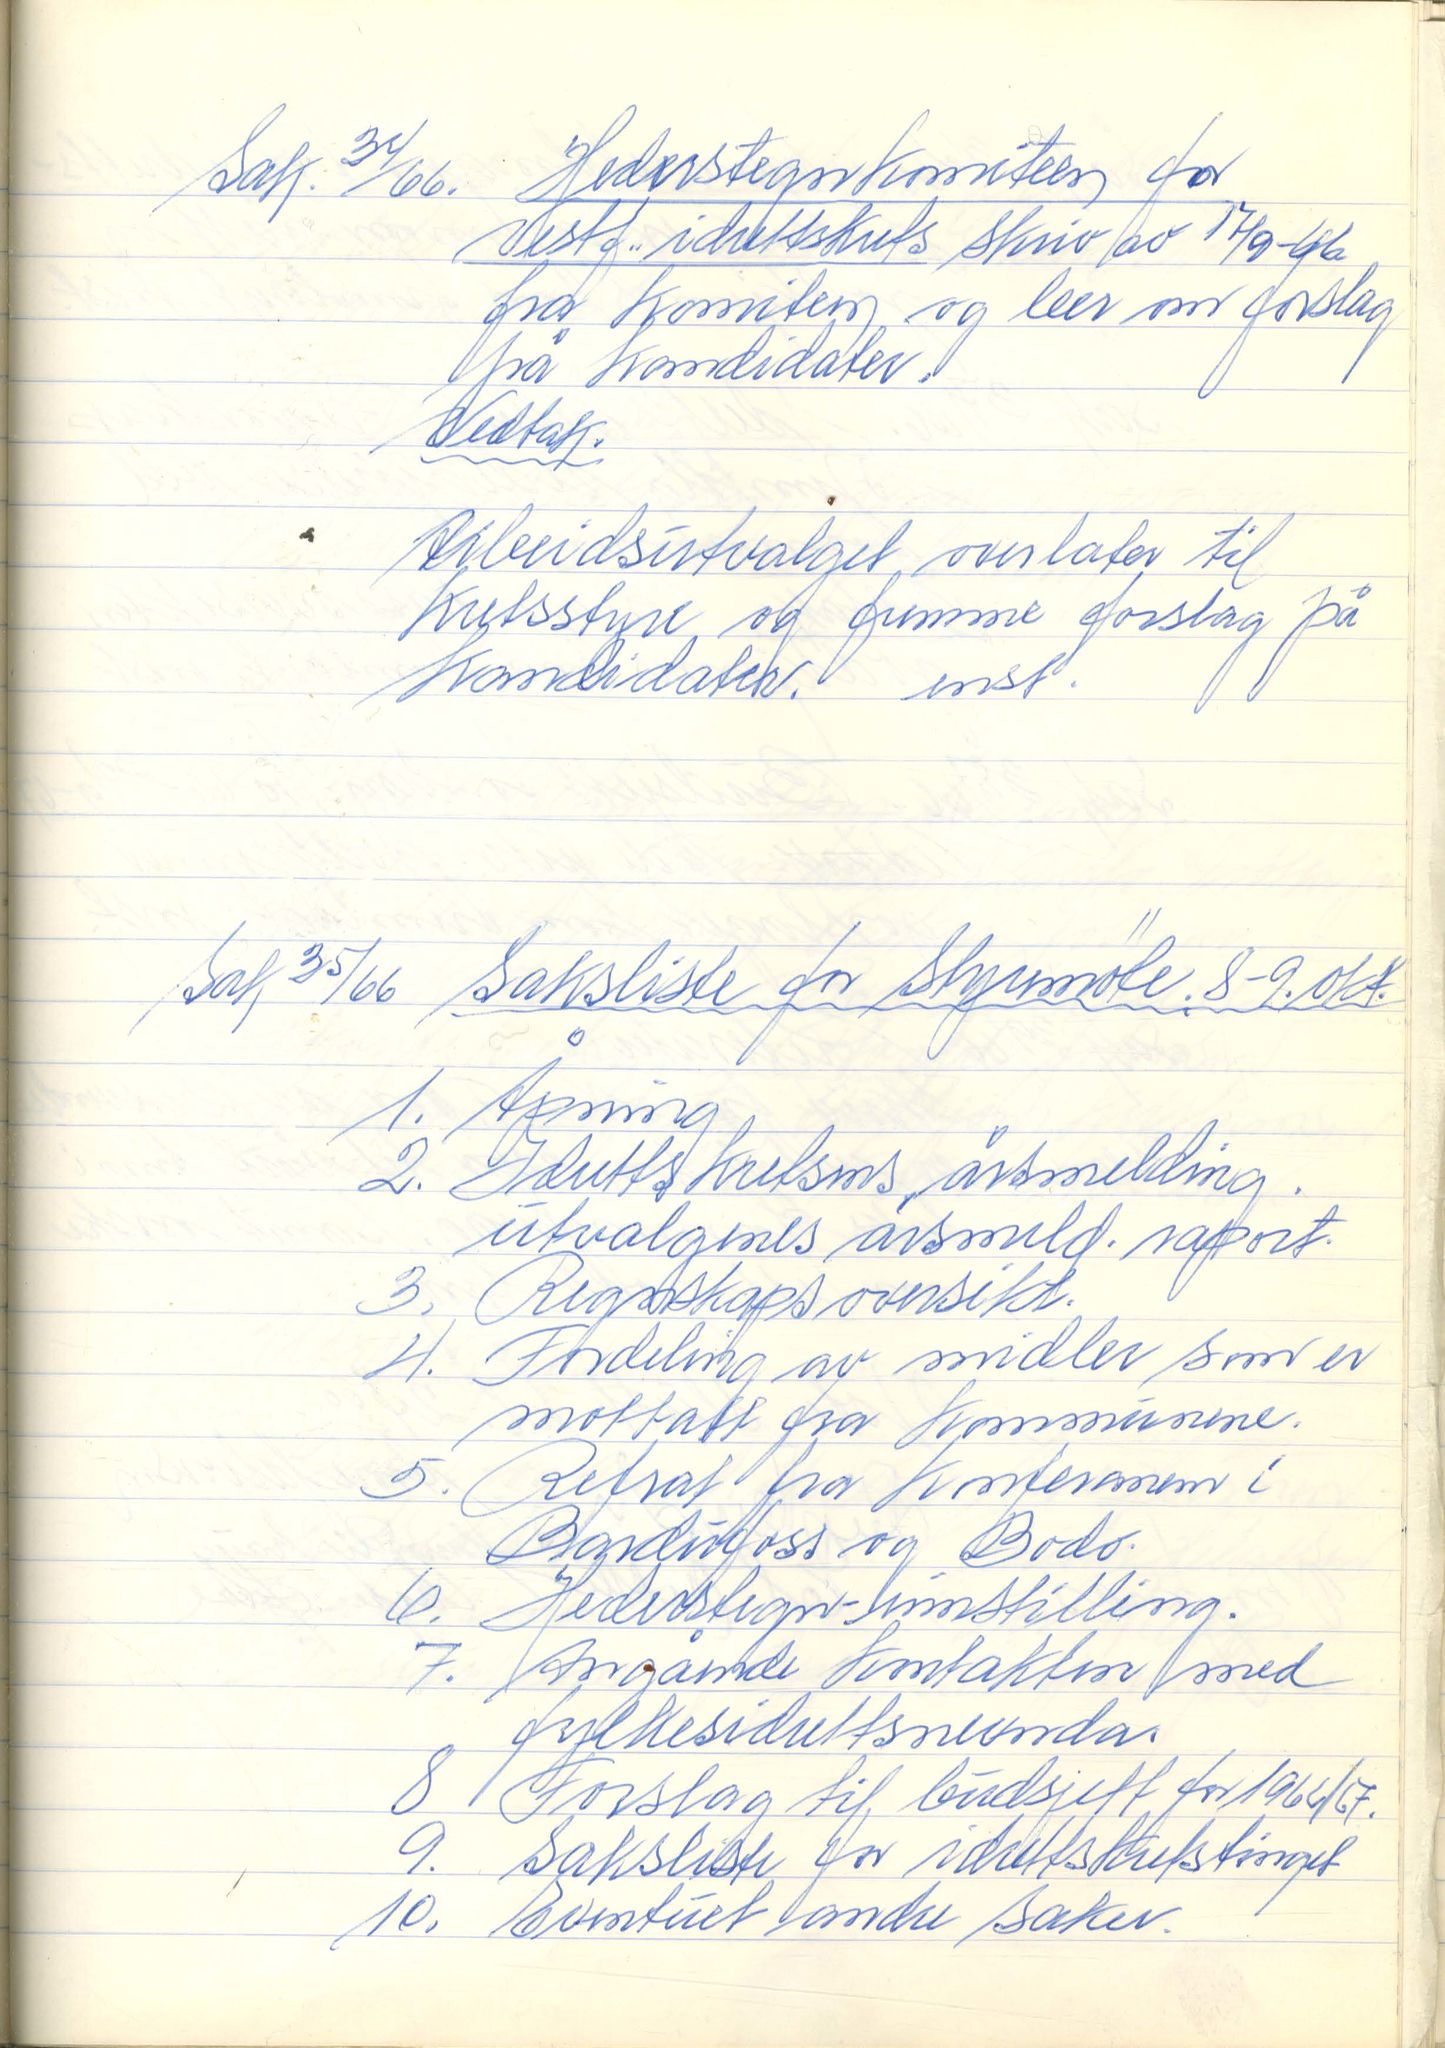 Sak. 34/66. Hederstegnkomiteen for
Vestf. idrettskrets skriv av 17/9-66
fra komiteen og beer om forslag
på kandidater.
Vedtak.
Arbeidsutvalget overlater til
Kretsstyre og fremme forslag på
kandidater. enst.
Sak 35/66 Saksliste for styremöte. 8-9. okt.
1. Åpning
2. Idrettskretsens årsmelding.
utvalgenes årsmeld. raport.
3. Regnskapsoversikt.
4. Fordeling av midler som er
mottatt fra kommunene.
5. Refrat fra konferansen i
Bardufoss og Bodo.
6. Hederstegn-innstilling.
7. Angående kontakten med
fylkesidrettsnevnda.
8 Forslag til budsjett for 1966/67.
9. Saksliste for idrettskretstinget
10. Eventuel andre saker.